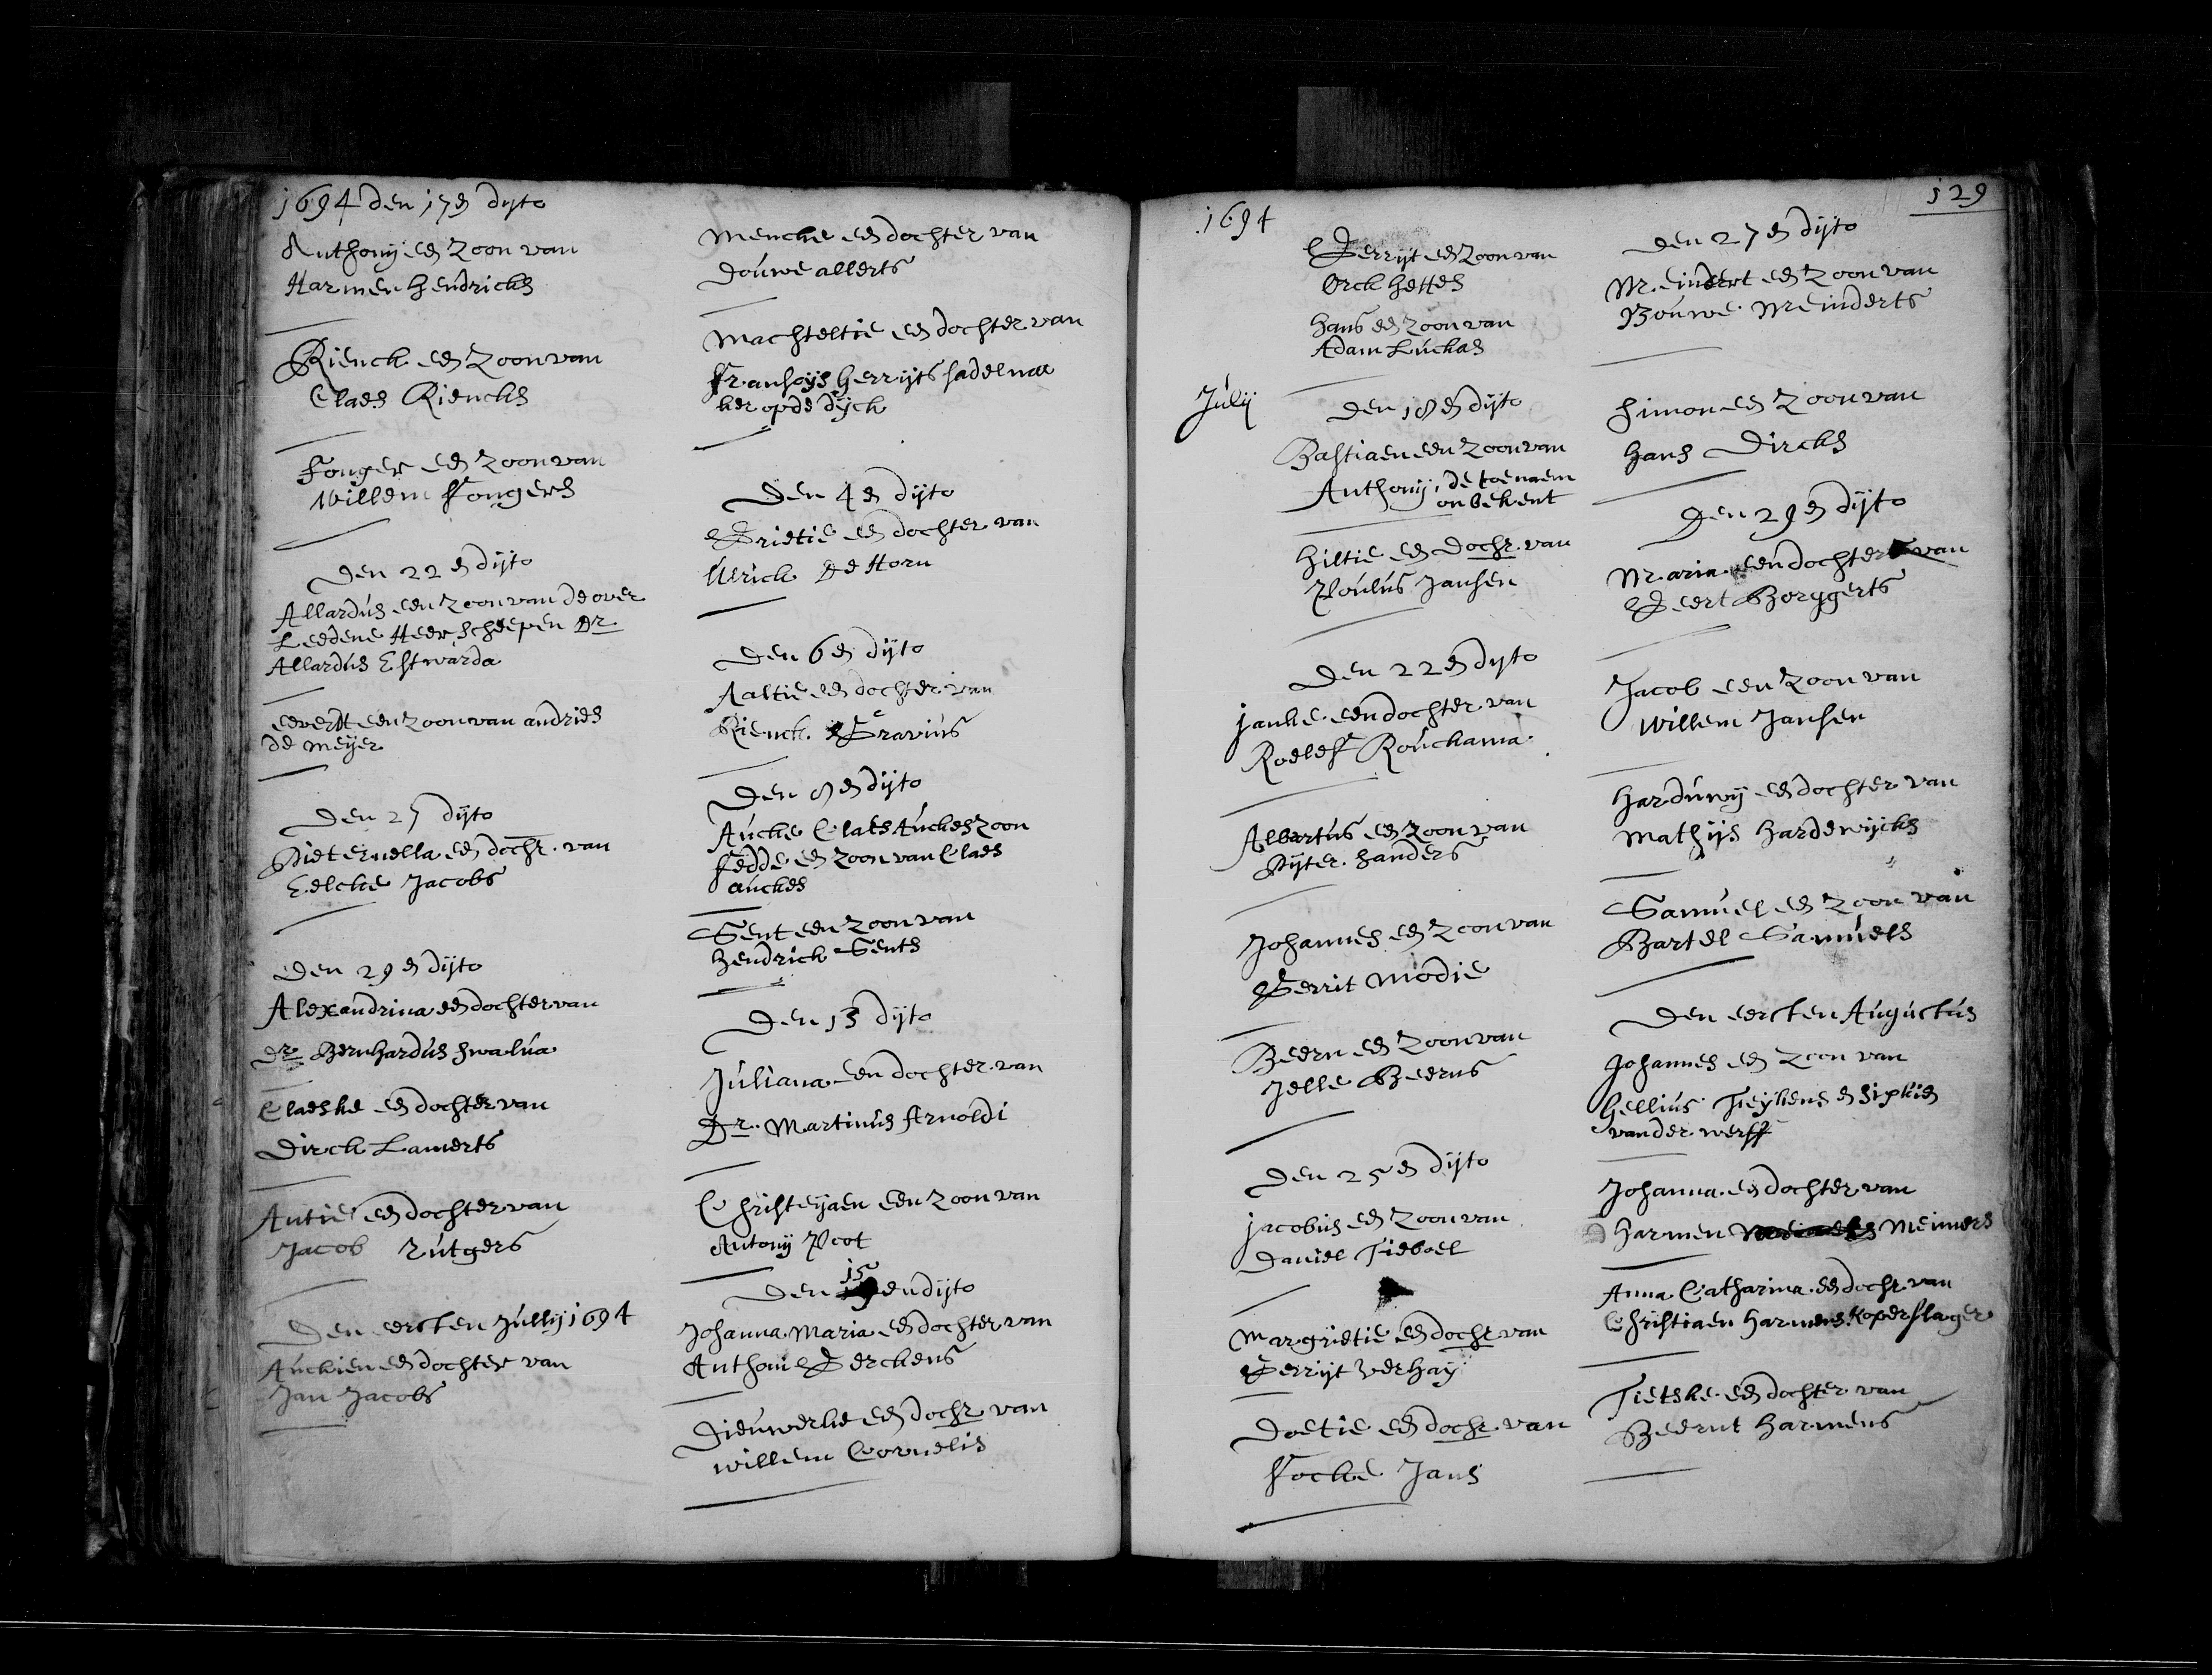 1694 den 17en dyto
Anthonij een Zoon van
Harmen Hendricks
Rienck een Zoon van
Claes Riencks
Fonger een Zoon van
Willem Fongers
Den 22en dijto
Allardus een Zoon van de over
Leedene Heer Scheepen Dr.
Allardus Estwarda
eevert een Zoon van andries
de meijer
Den 25 dijto
Pieternella een dochr. van
Eelcke Jacobs
Den 29en dijto
Alexandrina een dochter van
Dr. Bernhardus Swalua
Claeske een dochter van
Dirck Lamerts
Antie een dochter van
Jacob Rutgers
Den eersten Jullij 1694
Auckien een dochter van
Jan Jacobs
Mencke een dochter van
Douwe allerts
Machteltie een dochter van
Fransoijs Gerrijts sadelma
ker op de Dijck
Den 4en dijto
Grietie een dochter van
Ulrich De Horn
Den 6en dijto
Aaltie een dochter van
Rienck Gravius
Den 8en dijto
Aucke Claes Auckes Zoon
Fedde een Zoon van Claes
auckes
Gent een Zoon van
Hendrick Gents
Den 13 dijto
Juliana een dochter van
Dr. Martinus Arnoldi
Christeijaen een Zoon van
Antonij Poot
Den 15 en dijto
Johanna Maria een dochter van
Anthoni Gerckens
Dieuwerke een dochr. van
Willem Cornelis
1694
Gerrijt een Zoon van
Orck Hettes
Hans een Zoon van
Adam Luckas
Julij
Den 18en dijto
Bastiaen een Zoon van
Anthonij, de toenaem
onbekent
Hiltie een dochr. van
Poulus Jansen
Den 22en dyto
Janke een dochter van
Roelef Rouckama
Albartus een Zoon van
Pijter Sanders
Johannes een Zoon van
Gerrit Modie
Beern een Zoon van
Jelle Beerns
Den 25en dijto
Jacobus een Zoon van
Daniel Tieboel
Margrietie een dochr van
Gerrijt Verhaij
Doetie een dochr. van
Focke Jans
129
Den 27en dijto
Meindert een Zoon van
Bouwe Meinderts
Simon een Zoon van
Hans Dircks
Den 29en dijto
Maria een dochter van
Geert Borggerts
Jacob een Zoon van
Willem Jansen
Harduwij een dochter van
Mathijs Hardewijcks
Samuel een Zoon van
Bartel Samuels
Den eersten Augustus
Johannes een Zoon van
Gellius Feijkens en Sipkien
van der werff
Johanna een dochter van
Harmen Meiners
Anna Catharina een dochr van
Christiaen Harmens Koperslager
Tietske een dochter van
Beernt Harmens